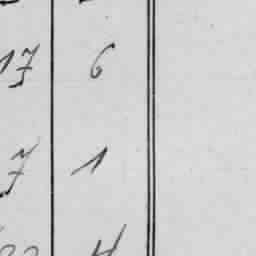 17 6
7 1
4